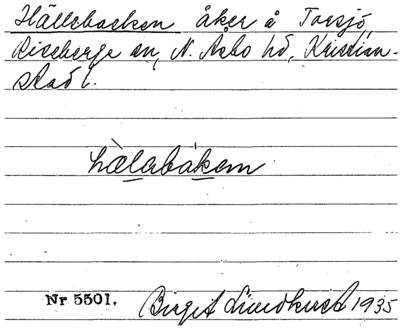 Hällebacken åker å Torsjö,
Riseberga sn, N. Åsbo hd, Kristian-
stad l.
hàlabákem
Nr 5501. Birget Lundkvist 1935